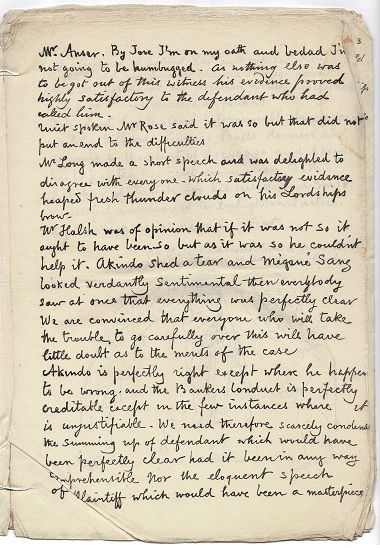 Mr Anser. By Jove I'm on my oath and bedad I'm
not going to be humbugged. As nothing else was
to be got out of this witness his evidence proved
highly satisfactory to the defendant who had
called him.
spoken Mr Rose said it was so but that did not
put an end to the difficulties
Mr Long made a short speech and was delighted to
disagree with everyone - which satisfactory evidence
heaped fresh thunder clouds on his Lordships
brow
Mr Walsh was of opinion that if it was not so it
ought to have been so but as it was so he couldn't
help it. Akindo shed a tear and Megane Sang
looked verdantly sentimental then everybody
saw at once that everything was perfectly clear
We are convinced that everyone who will take
the trouble to go carefully over this will have
little doubt as to the merits of the case
Akindo is perfectly right except where he happens
to be wrong, and the Bankers conduct is perfectly
creditable except in the few instances where it
is unjustifiable - We need therefore scarcely condense
the summing up of defendant which would have
been perfectly clear had it been in any way
comprehensible nor the eloquent speech
of Plaintiff which would have been a masterpiece
3